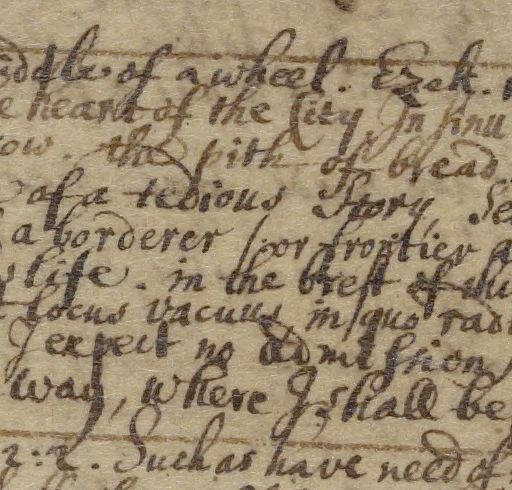 iddle of a wheel. Ezek.
e heart of the City. In sinu
ow. the pith of bread.
of a tedious Story. Se
a borderer or frontier a
s life. in the brest of
t locus vacuus in quo radi
I expect no admission
way, where I shall be
2:2. Such as have need of